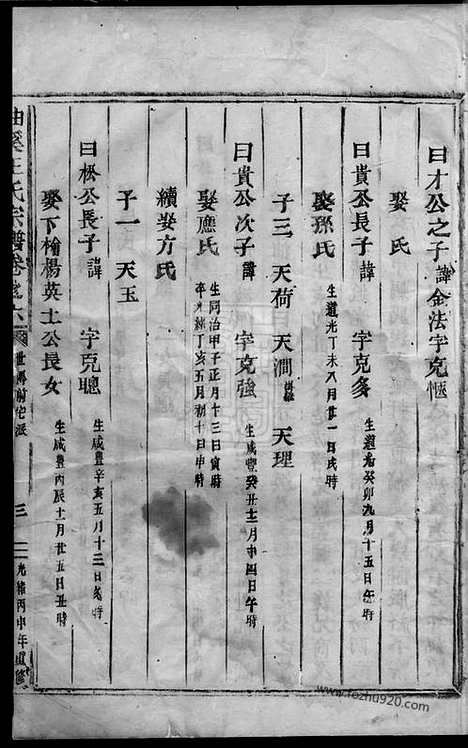 曰才公之子諱金法字克愜
娶 氏
曰貴公長子諱 字克多 生道光癸卯九月十五日午時
娶孫氏 生道光丁未八月廿一日戌時
子三 天荷 天澗 天理
曰貴公次子諱 字克強 生咸豐癸丑十二月廿四日午時
娶應氏 生同治甲子正月十三日寅時
卒光緒丁亥五月初十日申時
續娶方氏
子一 天玉
曰松公長子諱 字克聰 生咸豐辛亥五月十三日 時
娶下榆楊英士公長女 生咸豐丙辰十一月廿五日丑時
溪王氏宗譜卷 六 世 前宅派 三 光緒丙申年重修
www.fozhu920.com